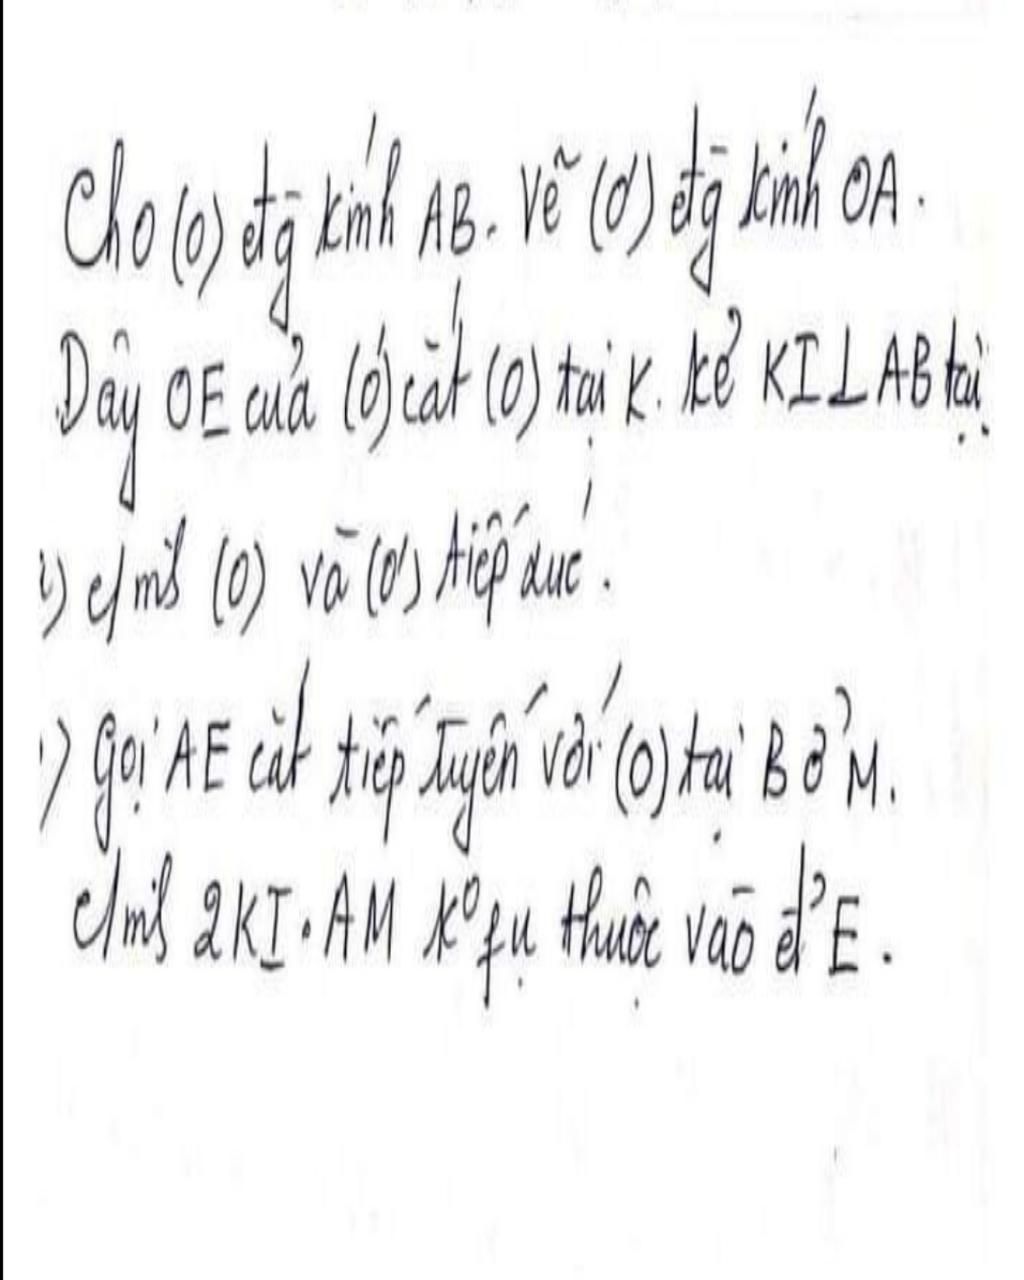 Cho (O) đg kính AB. Vẽ (O') đg kính OA.
Dây OE của (O') cắt (O) tại K. kẻ KI⊥AB tại
1) c/m: (O) và (O') tiếp xúc.
) Gọi AE cắt tiếp tuyến với (O) tại B ở M.
c/m: 2KI.AM kº fụ thuộc vào đ' E.